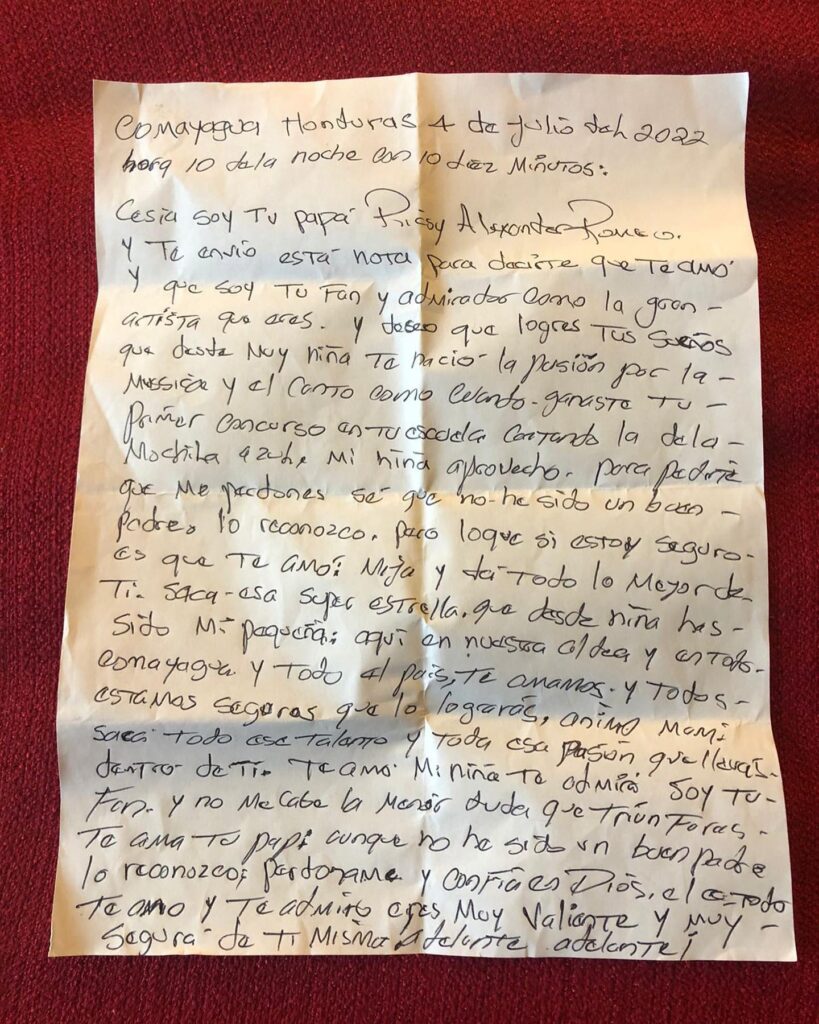 Comayagua Honduras 4 de julio deh 2022
hora 10 dela noche con 10 diez Minutos:
Cesia soy Tu papá Alexander Romero.
Y Te envio está nota para decirte que Te amó
Y que soy Tu Fan y admirador como la gran -
artista que eres. y deseo que logres Tus sueños
que desde Muy niña Te nació la pasión por la -
Mussica y el Canto como Cuando - ganaste Tu -
primer Concurso en Tu escuela Cantando la dela -
Mochila azuh, Mi niña aprovecho. para pedirte
que Me perdones sé que no - he sido un buen -
padre, lo reconozco. pero loque si estoy seguro -
es que Te amó: Mija y dá Todo lo Mejor de -
Ti. saca - esa super estrella. que desde niña has -
sido Mi pequeña: aquí en nuestra aldea y en Todo -
Comayagua y Todo el país, Te amamos - y Todos -
estamos seguros que lo lograrás, animo Mami
sacá Todo ese Talento y Toda esa pasión que llevas -
dentro de Ti. Te amó Mi niña Te admiró soy Tu -
Fan. y no Me Cabe la Menor duda que Triúnfaras -
Te ama Tu papi aunque no he sido un buen padre
lo reconozco; perdoname y Confía en Diós, el es Todo
Te amo y Te admiro eres Muy Valiente y Muy -
segura de Ti Misma Adelante adelante¡